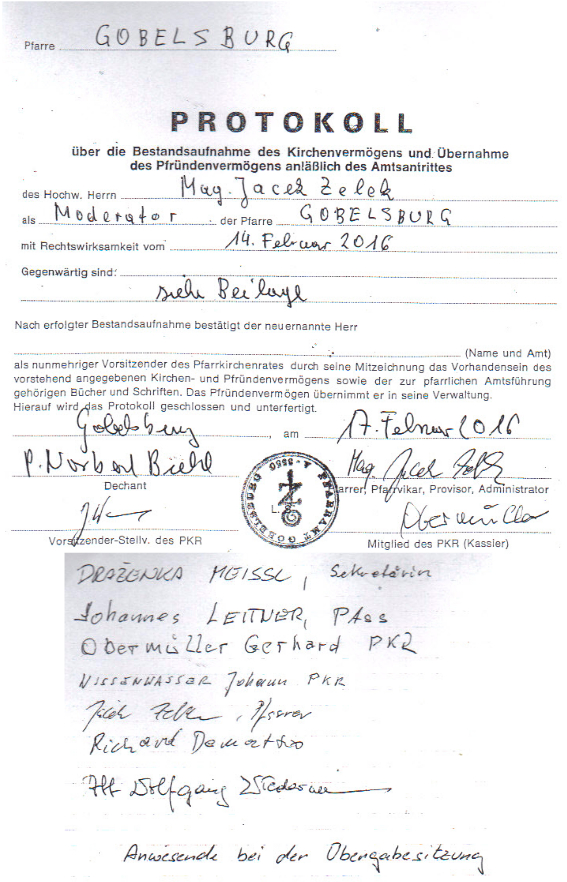 Pfarre GOBELSBURG
PROTOKOLL
über die Bestandsaufnahme des Kirchenvermögens und Übernahme
des Pfründenvermögens anläßlich des Amtsantrittes
des Hochw. Herrn Mag. Jacek Zelek
als Moderator der Pfarre GOBELSBURG
mit Rechtswirksamkeit vom 14. Februar 2016
Gegenwärtig sind:
siehe Beilage
Nach erfolgter Bestandsaufnahme bestätigt der neuernannte Herr
(Name und Amt)
als nunmehriger Vorsitzender des Pfarrkirchenrates durch seine Mitzeichnung das Vorhandensein des
vorstehend angegebenen Kirchen- und Pfründenvermögens sowie der zur pfarrlichen Amtsführung
gehörigen Bücher und Schriften. Das Pfründenvermögen übernimmt er in seine Verwaltung.
Hierauf wird das Protokoll geschlossen und unterfertigt.
Gobelsburg, am 17. Februar 2016
P. Norbert Mag. Jacek Zelek
Dechant Pfarrer, Pfarrvikar, Provisor, Administrator
PFARRAMT GOBELSBURG 3550
Obermüller
Vorsitzender-Stellv. des PKR Mitglied des PKR (Kassier)
DRAŽENKA MEISSL, Sekretärin
Johannes LEITNER, PAss
Obermüller Gerhard PKR
Johann PKR
Jacek Zelek, Pfarrer
Richard
Wolfgang
Anwesende bei der Übergabesitzung